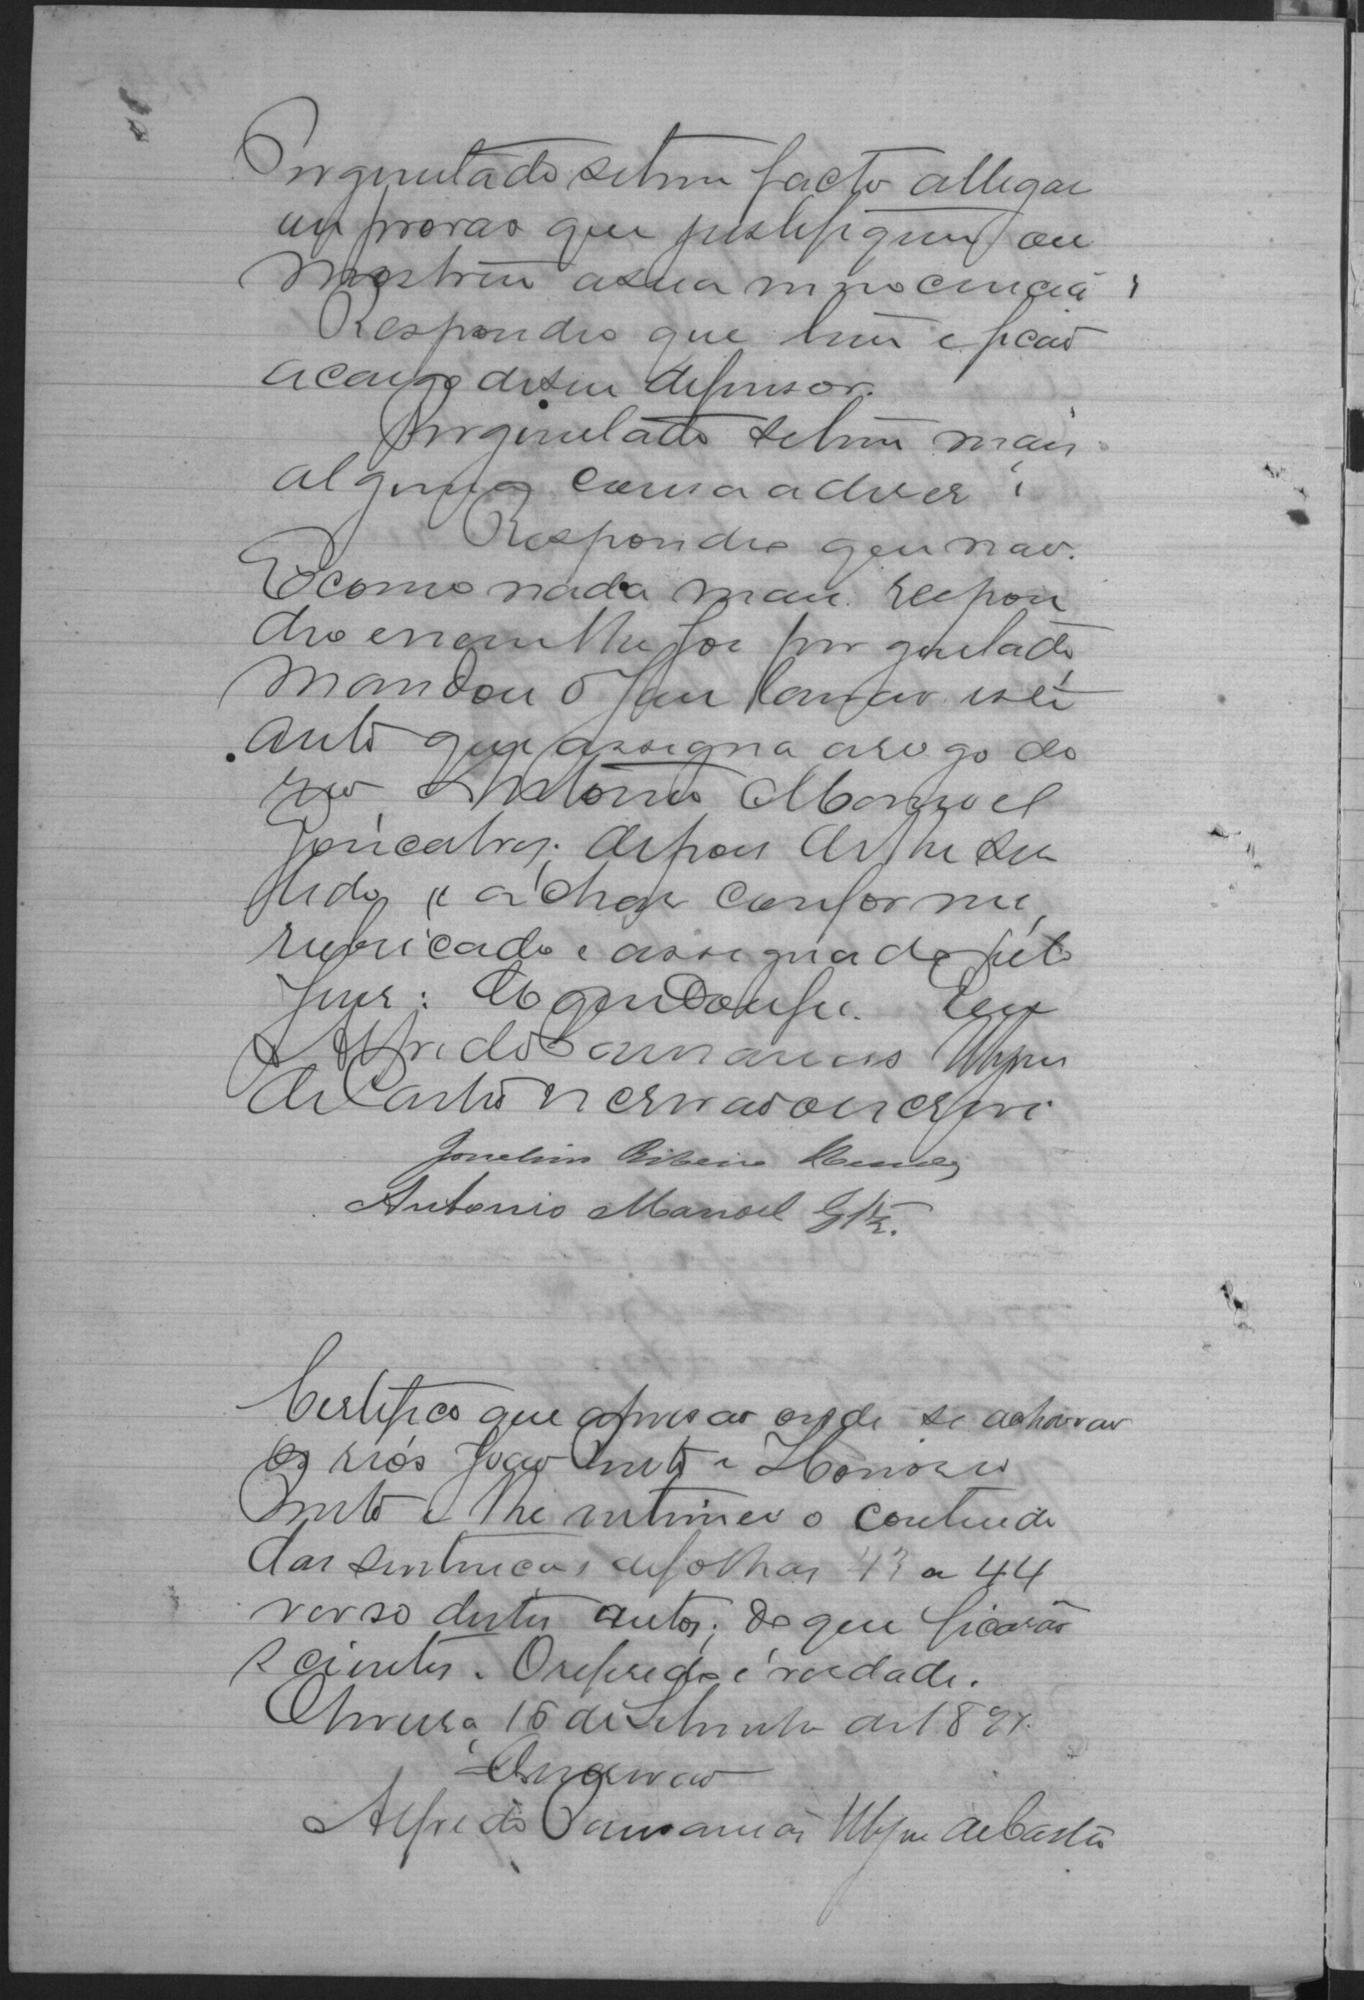 Perguntado se tem facto allegar
ou provas que justifiquem ou
mostrem a sua innocencia?
Respondeo que tem e ficão
a cargo de seu defensor.
Perguntado se tem mais
alguma cousa a dizer?
Respondeo que não.
E como nada mais respon
deo e nem lhe foi perguntado
mandou o Juiz lavrar este
auto que assigna a rogo do
reo Antonio Manoel
Gonçalves, depois de lhe ser
lido e achar conforme,
rubricado e assignado pelo
Juiz: do que dou fé. Eu
Alfredo Pausanias
de Castro escrivão o escrevi
Ribeiro
Antonio Manoel Glz.
Certifico que a prisão onde se achavão
os réos João Pinto e Honorio
Pinto e lhe intimei o conteudo
das sentenças de folhas 43 a 44
verso destes autos; do que ficarão
scientes. O referido é verdade.
15 de Setembro de 189
O escrivão
Alfredo Pausanias de Castro